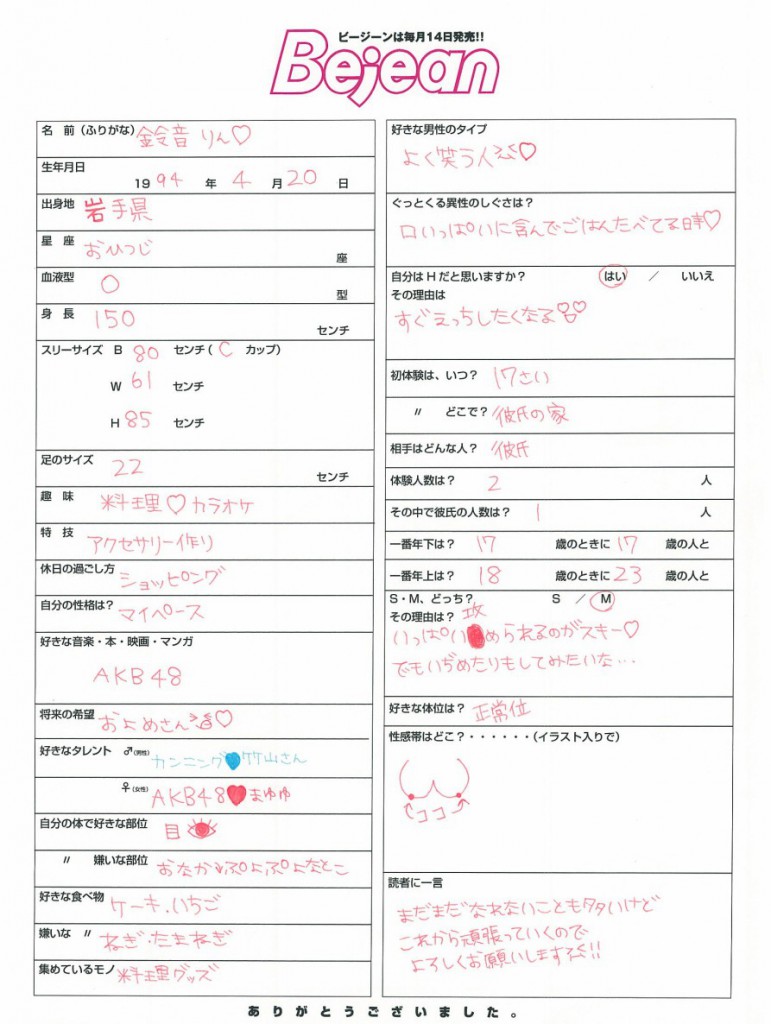 ビージーンは毎月14日発売!!
Bejean
名 前(ふりがな) 鈴音 りん♡
生年月日
1994 年 4 月 20 日
出身地 岩手県
星 座 おひつじ 座
血液型 O 型
身 長 150 センチ
スリーサイズ B 80 センチ( C カップ)
W 61 センチ
H 85 センチ
足のサイズ 22 センチ
趣 味 料理♡カラオケ
特 技 アクセサリー作り
休日の過ごし方 ショッピング
自分の性格は? マイペース
好きな音楽・本・映画・マンガ
AKB48
将来の希望 およめさん♡
好きなタレント ♂(男性) カンニング♥竹山さん
♀(女性) AKB48♥まゆゆ
自分の体で好きな部位 目
〃 嫌いな部位 おなかぷよぷよなとこ
好きな食べ物 ケーキ・いちご
嫌いな 〃 ねぎ・たまねぎ
集めているモノ 料理グッズ
好きな男性のタイプ
よく笑う人♡
ぐっとくる異性のしぐさは?
口いっぱいに含んでごはんたべてる時♡
自分はHだと思いますか? はい / いいえ
その理由は
すぐえっちしたくなる
初体験は、いつ? 17さい
〃 どこで? 彼氏の家
相手はどんな人? 彼氏
体験人数は? 2 人
その中で彼氏の人数は? 1 人
一番年下は? 17 歳のときに 17 歳の人と
一番年上は? 18 歳のときに 23 歳の人と
S・M、どっち? S / M
その理由は?
いっぱい攻められるのがスキー♡
でもいぢめたりもしてみたいな…
好きな体位は? 正常位
性感帯はどこ?・・・・・・(イラスト入りで)
ココ
読者に一言
まだまだなれないことも多いけど
これから頑張っていくので
よろしくお願いします!!
ありがとうございました。